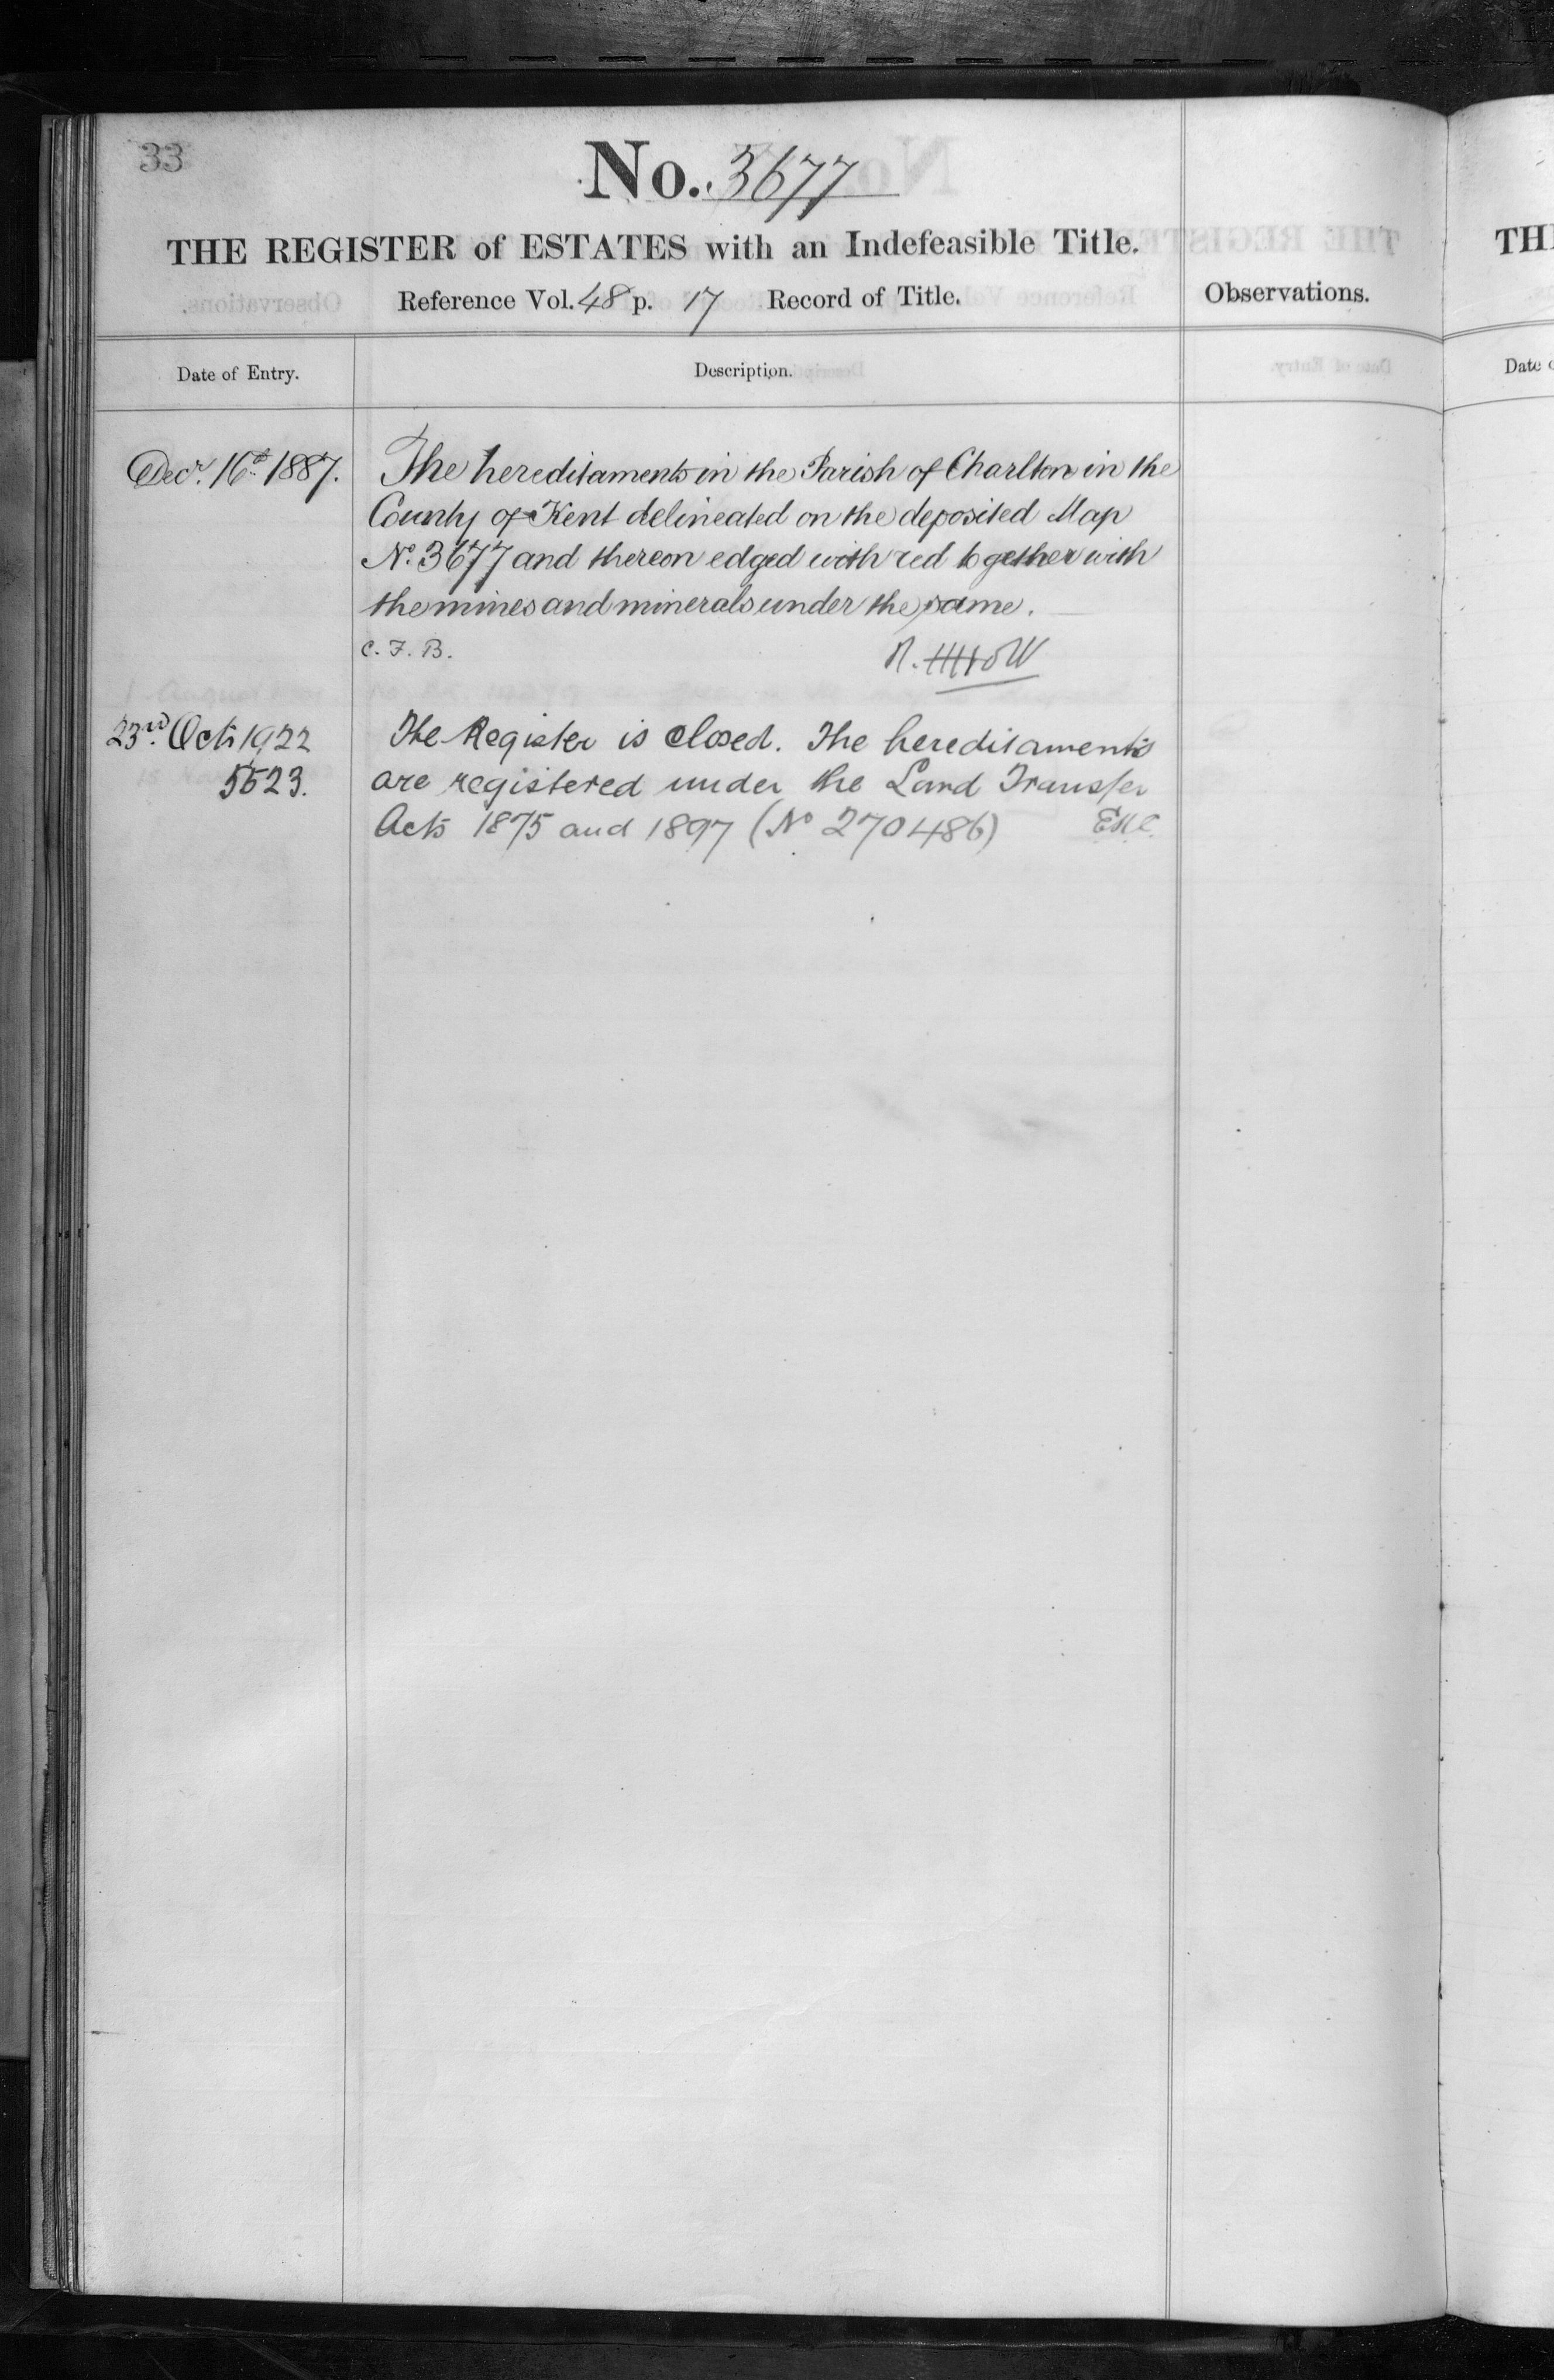 33
No. 3677
THE REGISTER of ESTATES with an Indefeasible Title.
Reference Vol. 48 p. 17 Record of Title.
Observations.
Date of Entry.
Description.
Decr. 16th 1887.
The hereditaments in the Parish of Charlton in the
County of Kent delineated on the deposited Map
No. 3677 and thereon edged with red together with
the mines and minerals under the same.
C. F. B.
23rd Oct 1922
5523.
The Register is closed. The hereditaments
are registered under the Land Transfer
Acts 1875 and 1897 (No 270486)
TH
Date